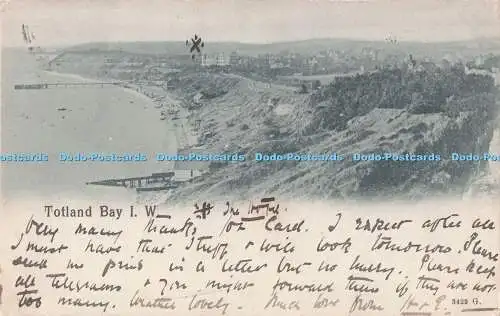 Dodo-Postcards Dodo-Postcards Dodo-Postcards Dodo-Postcards Dodo-Postcards Dodo-Postcards
Totland Bay I. W. * The Hotel
Very many thanks for Card. I expect after all
I must have that Stuff & will look tomorrow. Please
send me pins in a letter but no hurry. Please keep
all Telegrams & you might forward them if they are not
too many. Weather lovely. Much love from
5425 G.